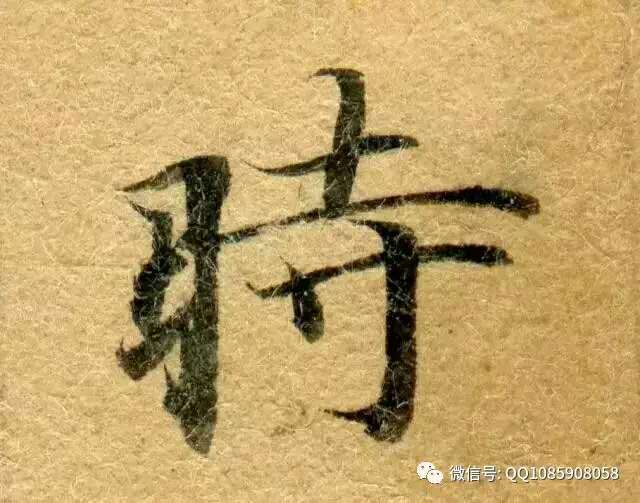 時
微信号: QQ1085908058